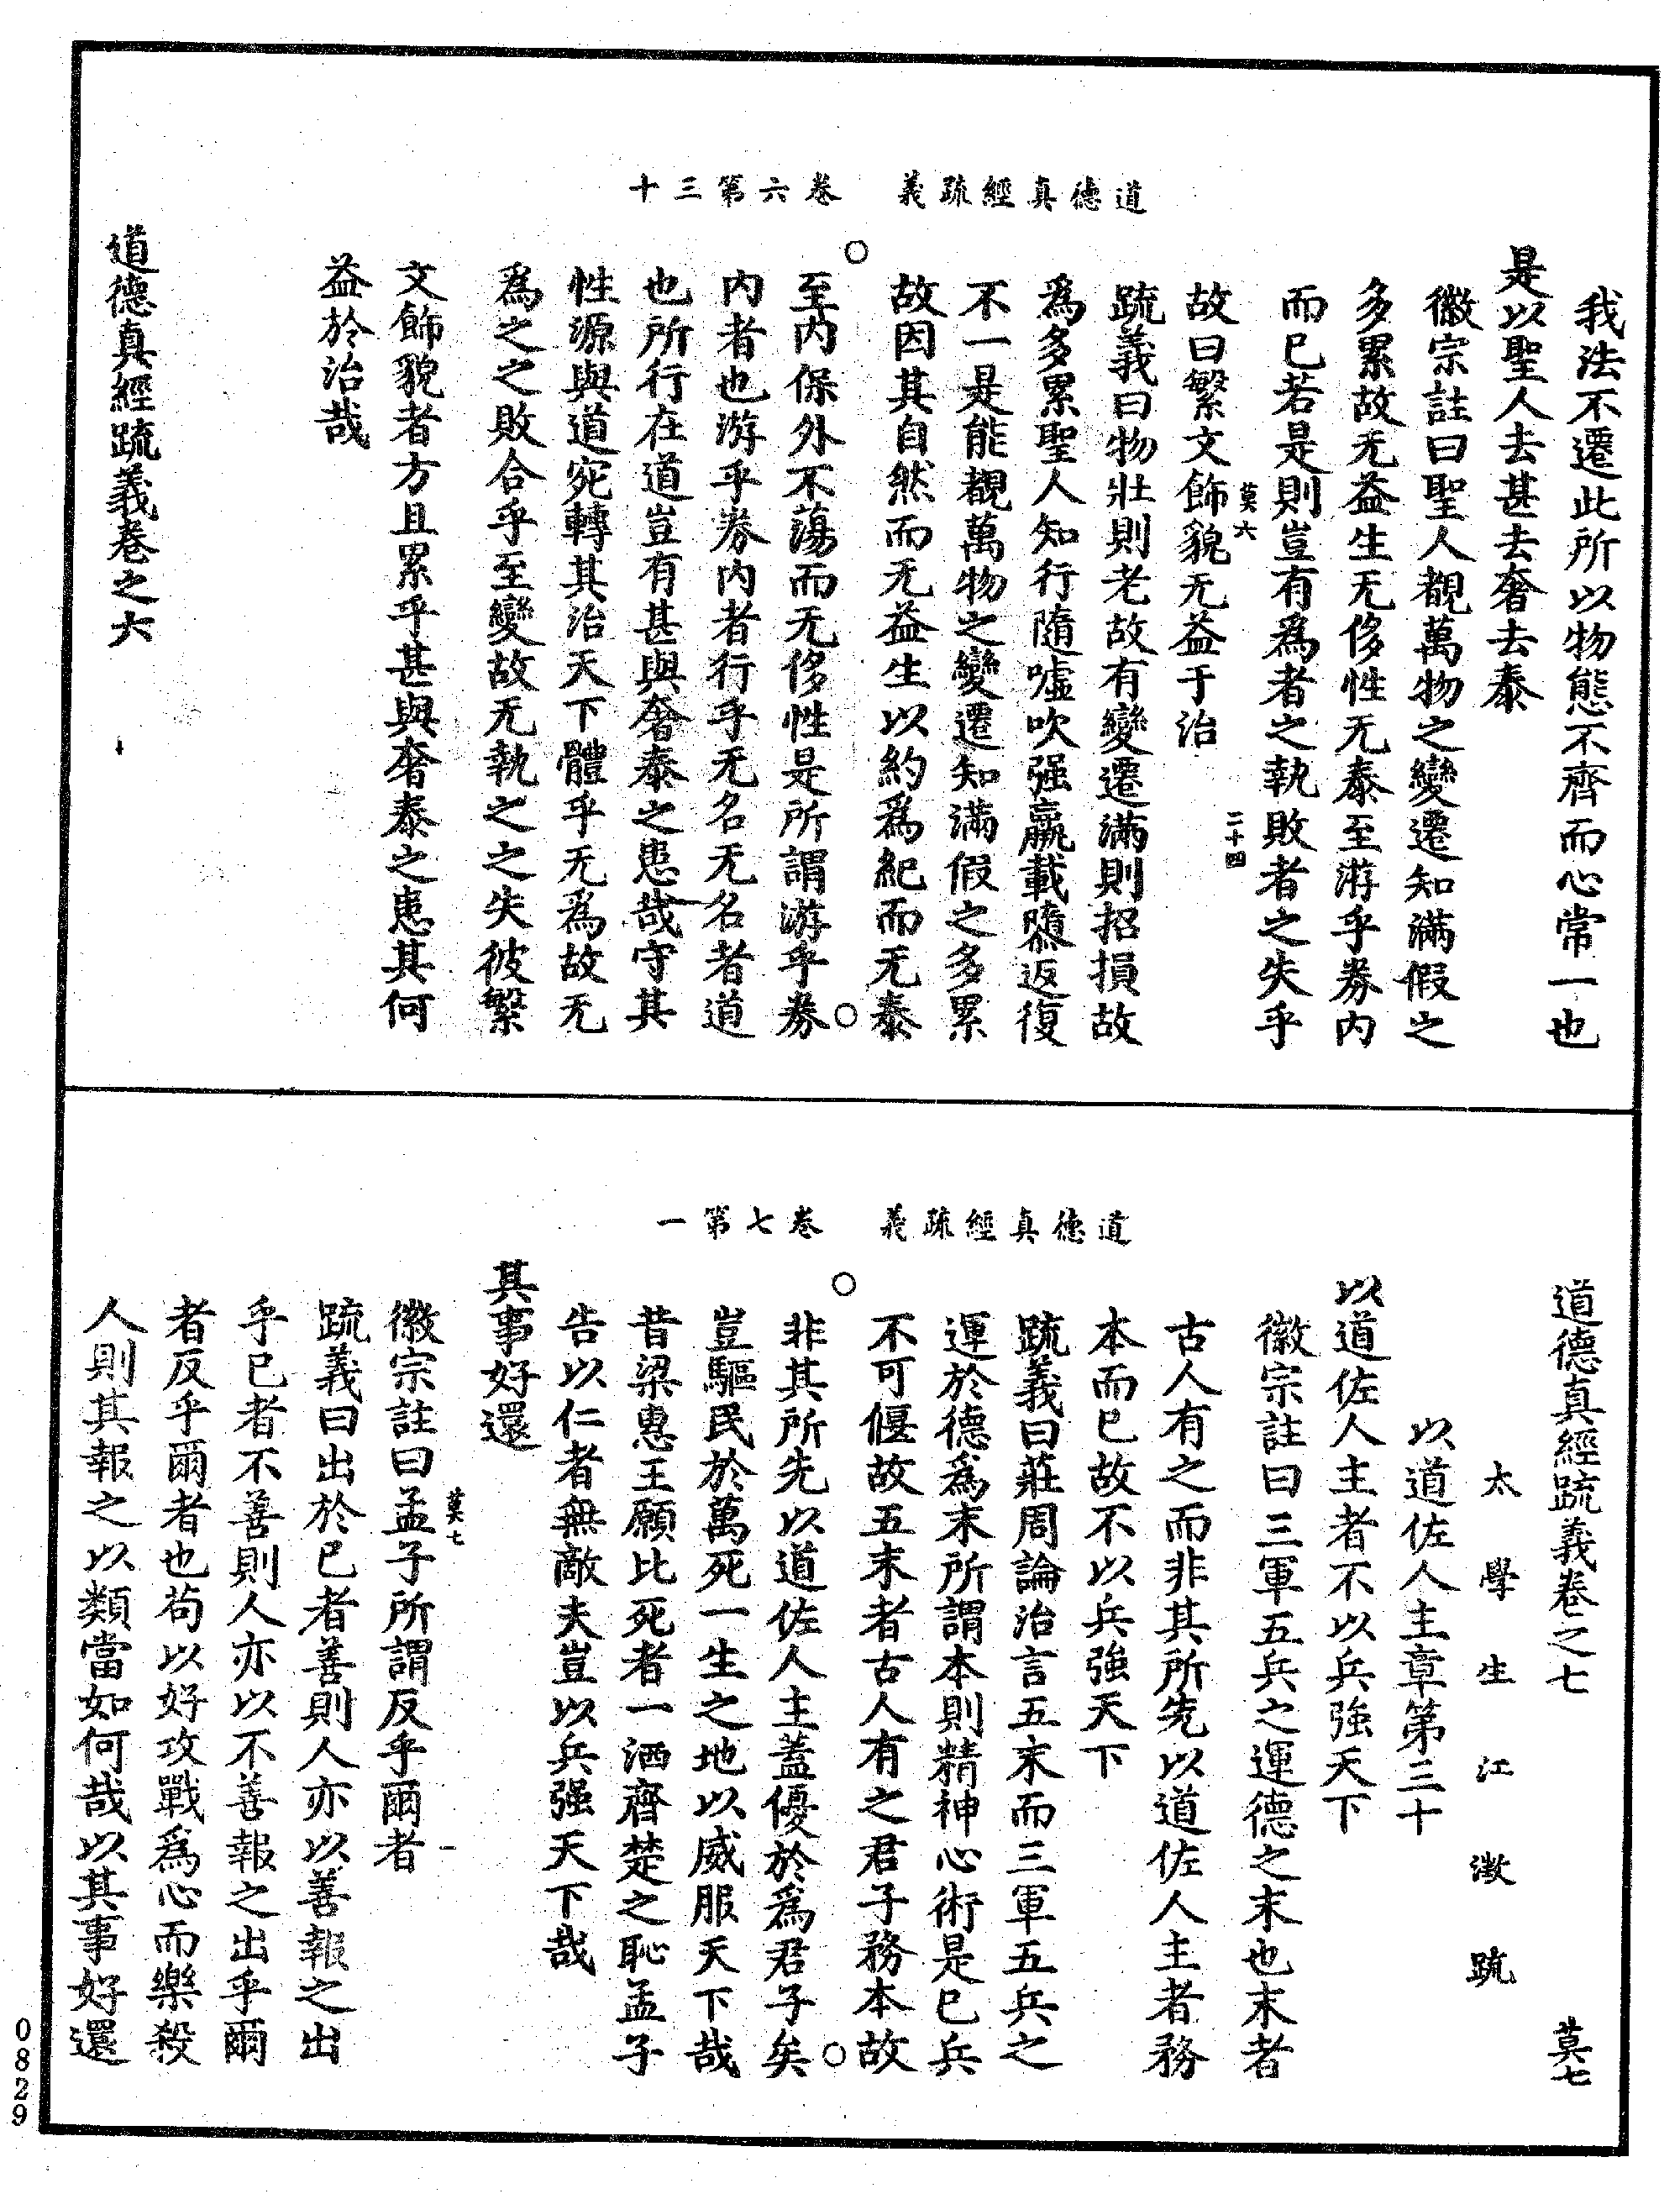 道德真經疏義　卷六第三十
我法不遷此所以物態不齊而心常一也
是以聖人去甚去奢去泰
徽宗註曰聖人覩萬物之變遷知滿假之
多累故无益生无侈性无泰至游乎券内
而已若是則豈有爲者之執敗者之失乎
莫六
二十四
故曰繁文飾貌无益于治
疏義曰物壯則老故有變遷滿則招損故
爲多累聖人知行隨噓吹强羸載隳返復
不一是能覩萬物之變遷知滿假之多累
故因其自然而无益生以約爲紀而无泰
至内保外不蕩而无侈性是所謂游乎券
内者也游乎券内者行乎无名无名者道
也所行在道豈有甚與奢泰之患哉守其
性源與道宛轉其治天下體乎无爲故无
爲之之敗合乎至變故无執之之失彼繁
文飾貌者方且累乎甚與奢泰之患其何
益於治哉
道德真經疏義卷之六
道德真經疏義　卷七第一
道德真經疏義卷之七
莫七
太學生江澂疏
以道佐人主章第三十
以道佐人主者不以兵強天下
徽宗註曰三軍五兵之運德之末也末者
古人有之而非其所先以道佐人主者務
本而已故不以兵強天下
疏義曰莊周論治言五末而三軍五兵之
運於德爲末所謂本則精神心術是已兵
不可偃故五末者古人有之君子務本故
非其所先以道佐人主蓋優於爲君子矣
豈驅民於萬死一生之地以威服天下哉
昔梁惠王願比死者一洒齊楚之恥孟子
告以仁者無敵夫豈以兵强天下哉
其事好還
莫七
一
徽宗註曰孟子所謂反乎爾者
疏義曰出於已者善則人亦以善報之出
乎已者不善則人亦以不善報之出乎爾
者反乎爾者也苟以好攻戰爲心而樂殺
人則其報之以類當如何哉以其事好還
0829